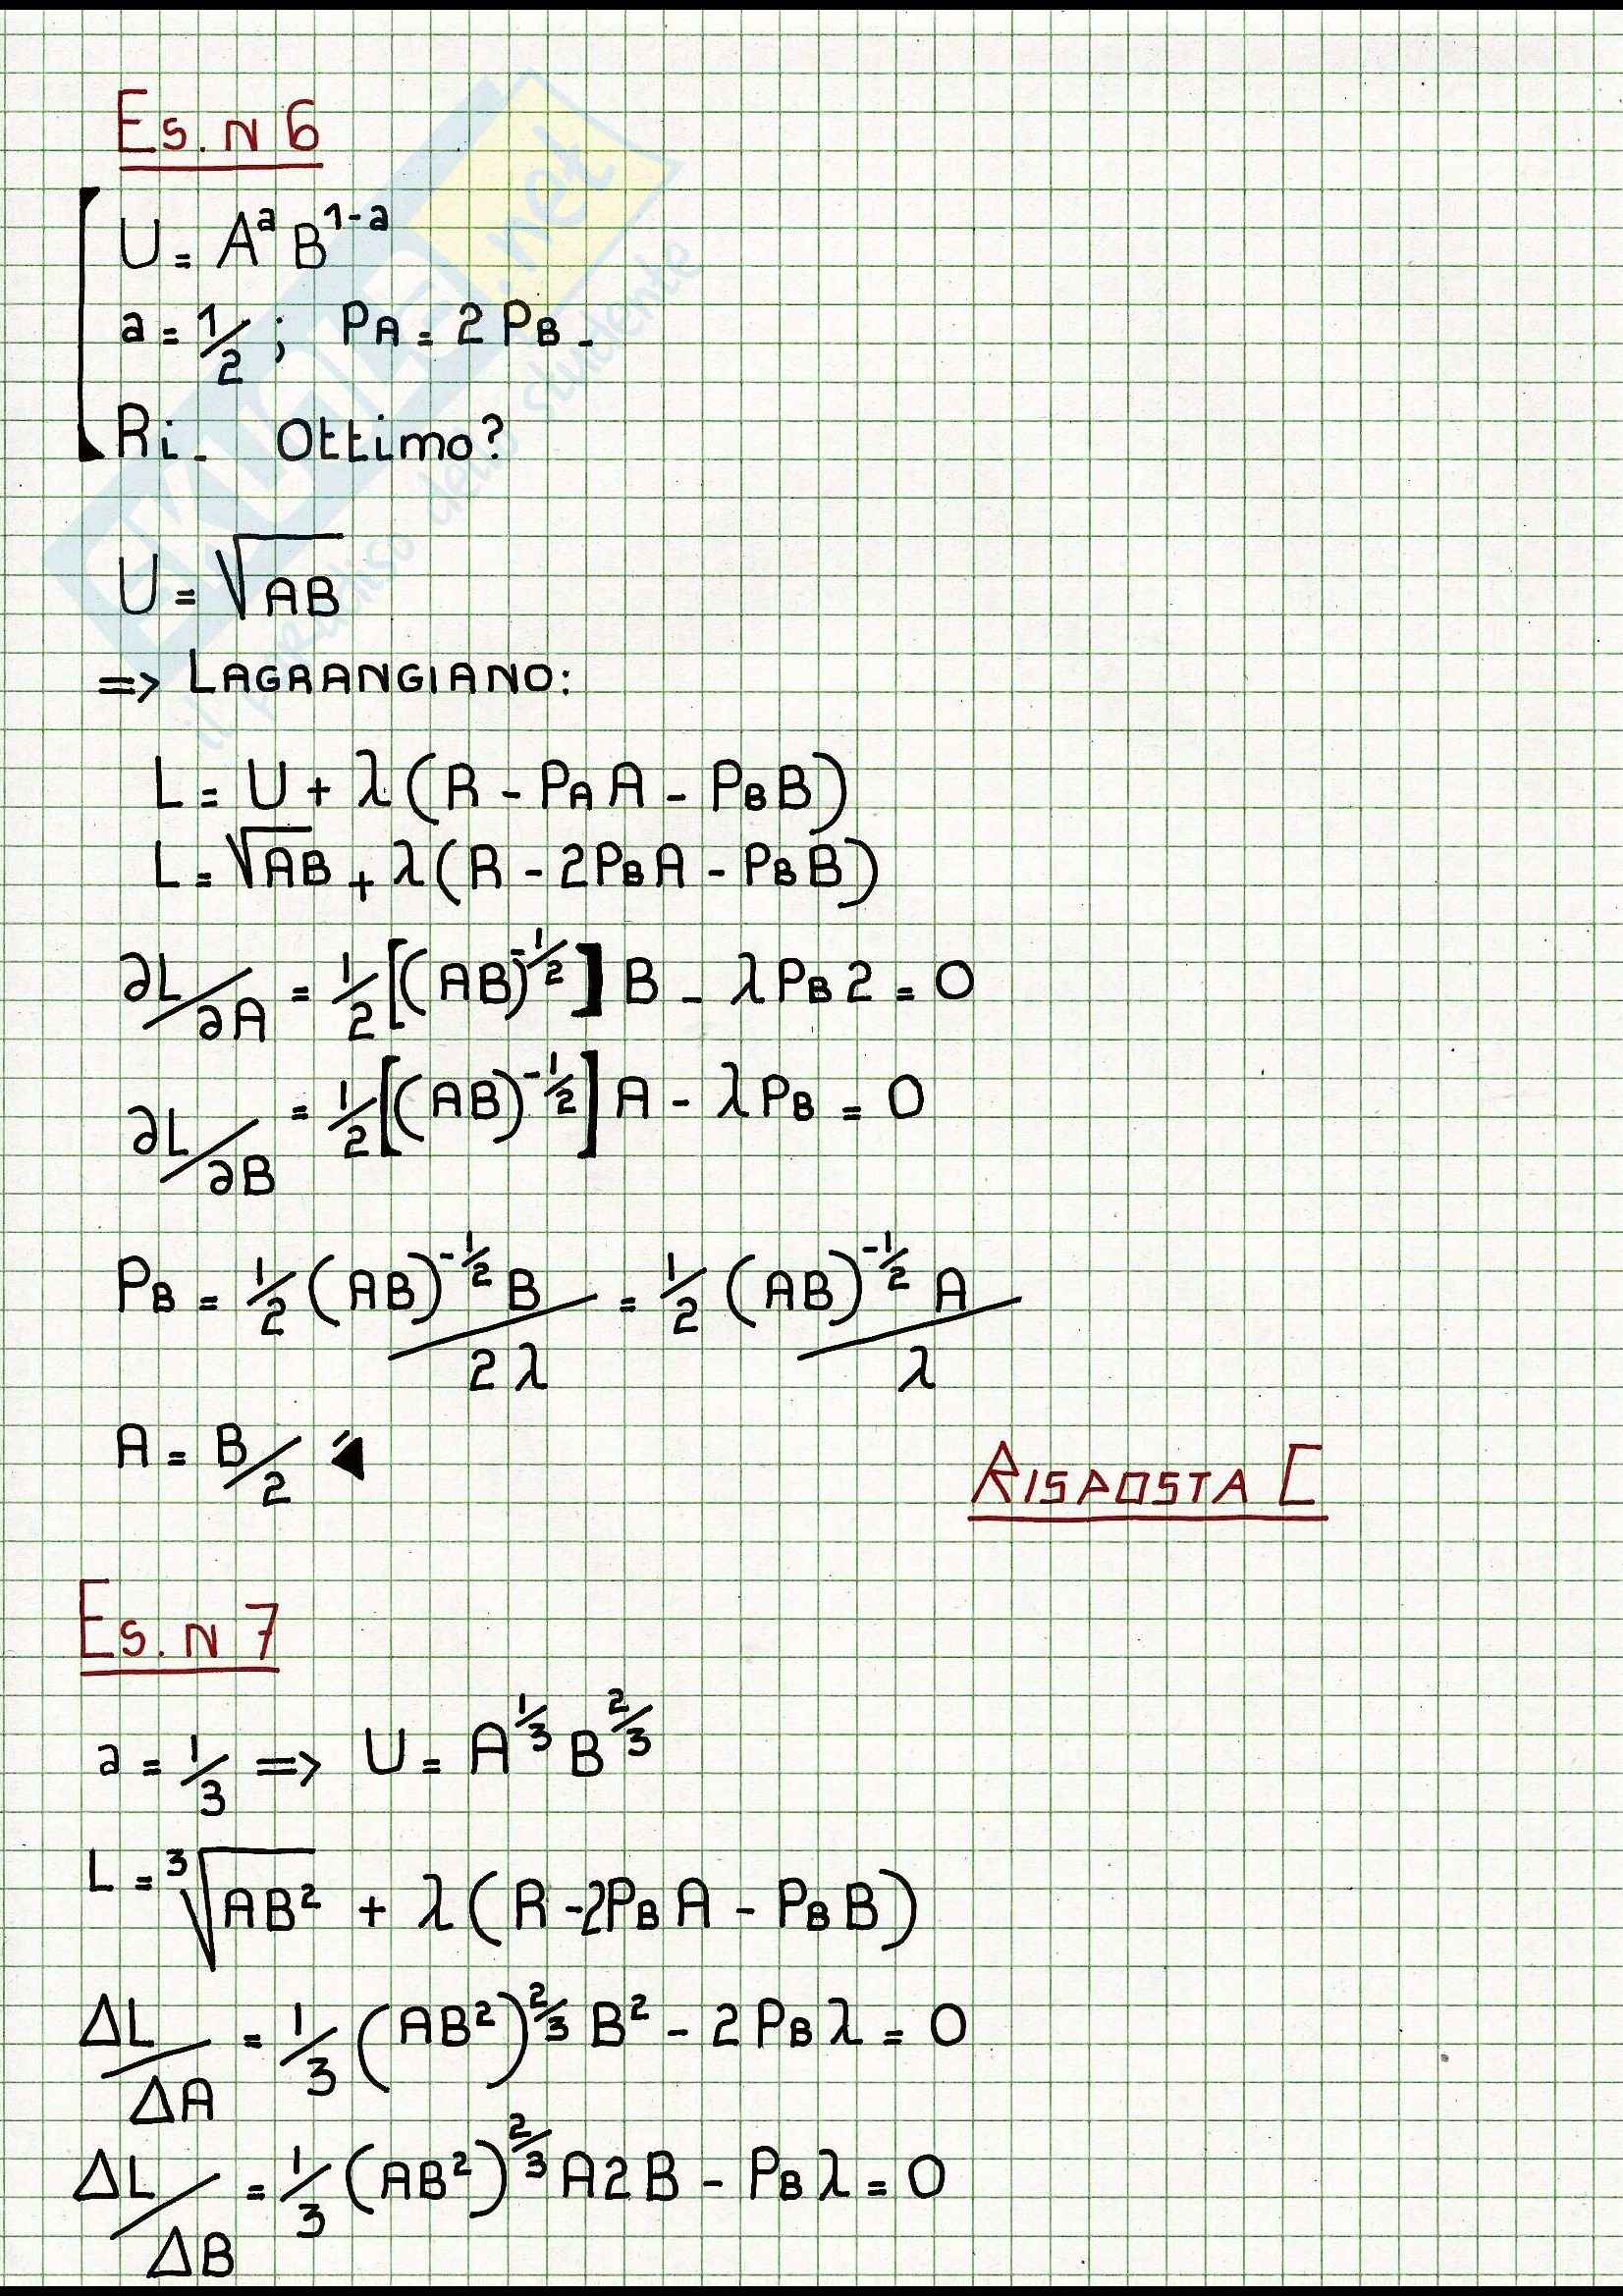 Es. N 6
U = A^a B^{1-a}
a = 1/2 ; PA = 2 PB -
Ri - Ottimo?
U = √AB
=> LAGRANGIANO:
L = U + λ (R - PA A - PB B)
L = √AB + λ (R - 2PB A - PB B)
∂L/∂A = 1/2 [(AB)^{-1/2}] B - λ PB 2 = 0
∂L/∂B = 1/2 [(AB)^{-1/2}] A - λ PB = 0
PB = 1/2 (AB)^{-1/2} B / 2λ = 1/2 (AB)^{-1/2} A / λ
A = B/2
RISPOSTA C
Es. N 7
a = 1/3 => U = A^{1/3} B^{2/3}
L = ³√AB² + λ (R - 2PB A - PB B)
ΔL/ΔA = 1/3 (AB²)^{2/3} B² - 2 PB λ = 0
ΔL/ΔB = 1/3 (AB²)^{2/3} A2B - PB λ = 0
.net
il paradiso dello studente